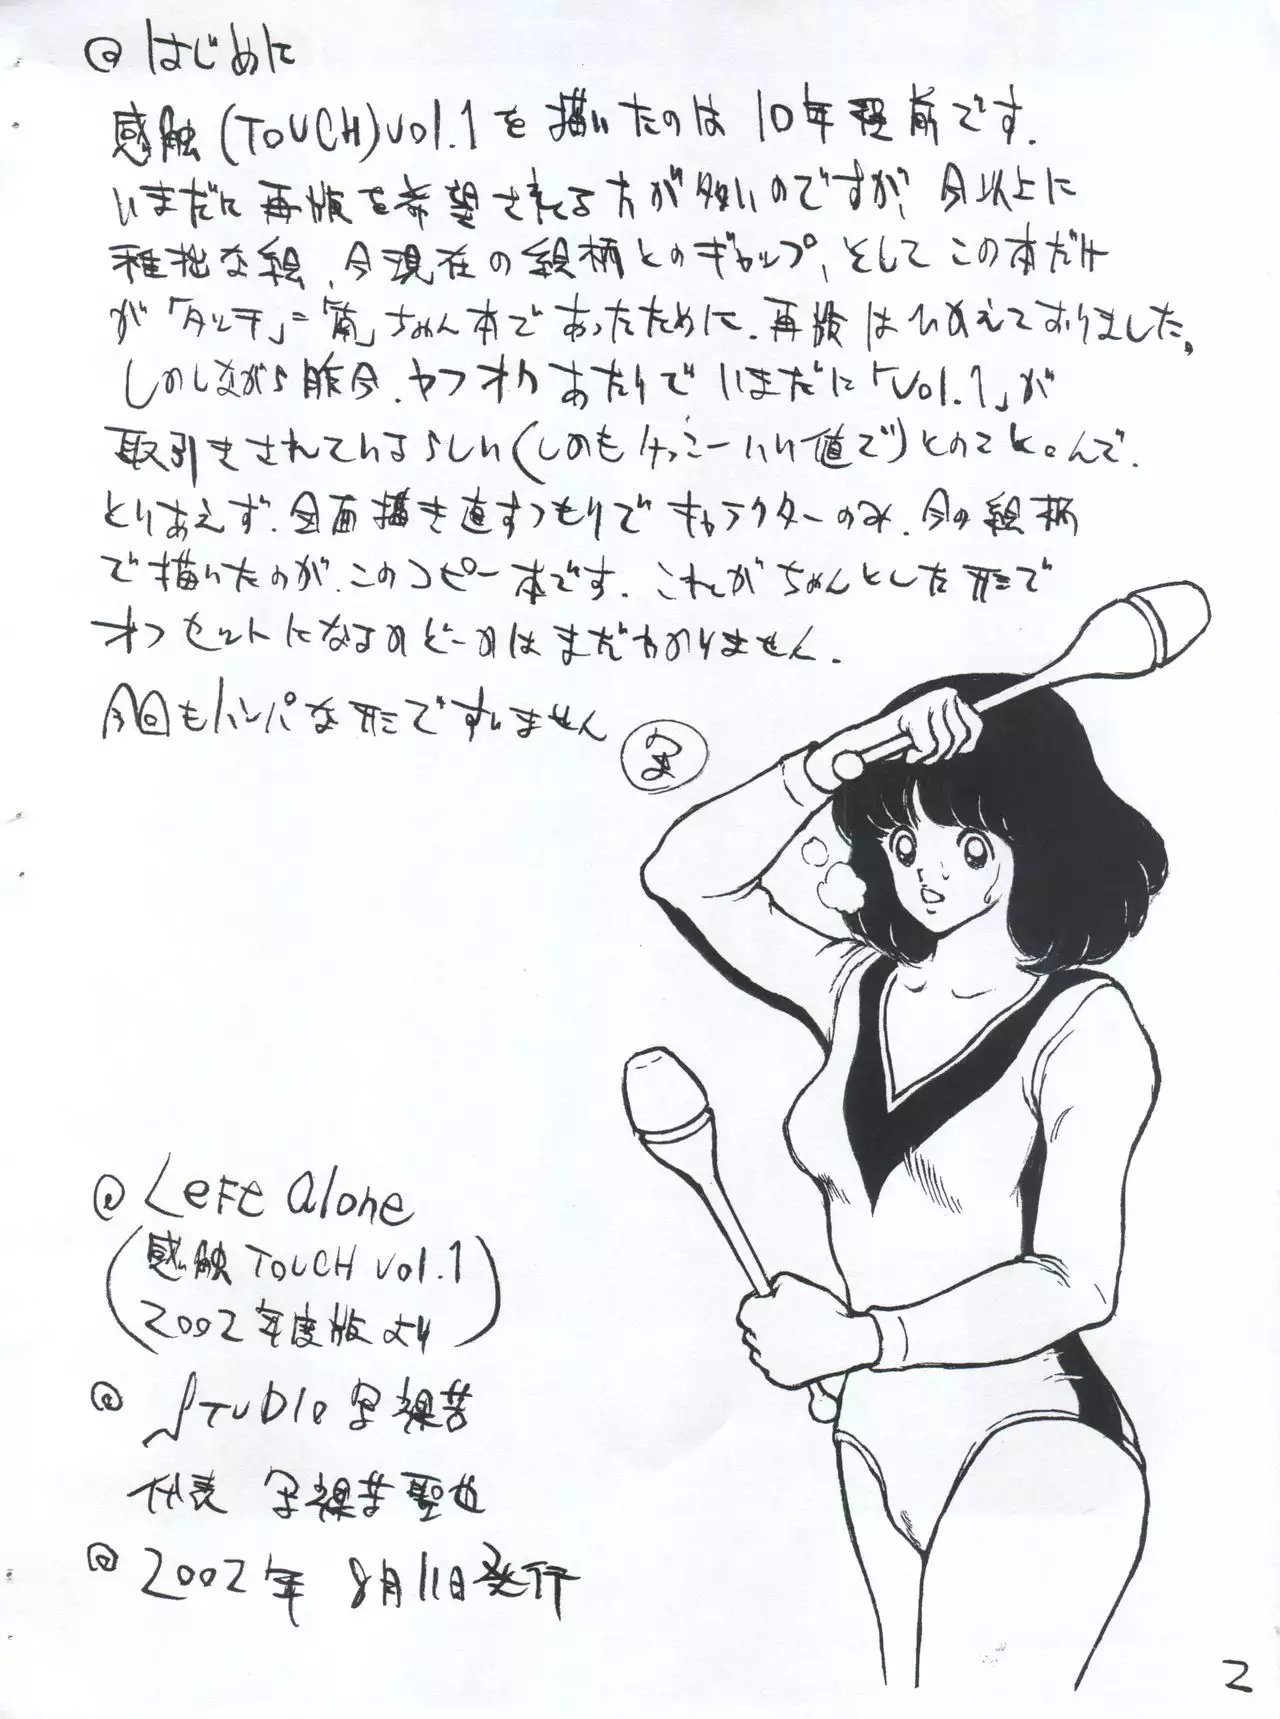 @ はじめに
感触(TOUCH)vol.1を描いたのは10年程前です.
いまだに再版を希望される方が多いのですが、今以上に
稚拙な絵、今現在の絵柄とのギャップ、そしてこの本だけ
が「タッチ」=「南」ちゃん本であったために、再版はひかえておりました。
しかしながら昨今、ヤフオクあたりでいまだに「Vol.1」が
取引きされているらしい(しかもけっこーいい値で)とのことなんで、
とりあえず、全面描き直すつもりでキャラクターのみ、今の絵柄
で描いたのが、このコピー本です. これがちゃんとした形で
オフセットになるかどーかはまだわかりません.
今回もハンパな形ですいません
@ Left Alone
(感触 TOUCH vol.1
2002年度版より)
@ STUDIO 写裸苦
代表 写裸苦聖也
@ 2002年 8月11日発行
2